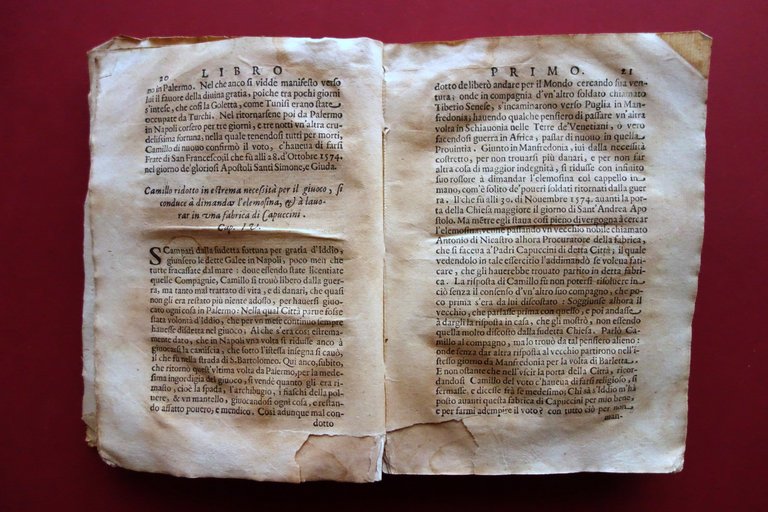 20 LIBRO
no in Palermo. Nel che anco si vidde manifesto verso
lui il fauore della diuina gratia, poiche tra pochi giorni
s'intese, che così la Goletta, come Tunisi erano state
occupate da Turchi. Nel ritornarsene poi da Palermo
in Napoli corsero per tre giorni, e tre notti vn'altra cru-
delissima fortuna, nella quale tenendosi tutti per morti,
Camillo di nuouo confirmò il voto, c'haueua di farsi
Frate di San Francesco, il che fu alli 28. d'Ottobre 1574.
nel giorno de' gloriosi Apostoli Santi Simone, e Giuda.
Camillo ridotto in estrema necessità per il giuoco, si
conduce à dimandar l'elemosina, & à lauo-
rar in vna fabrica di Capuccini.
Cap. IV.
SCampati dalla sudetta fortuna per gratia d'Iddio,
giunsero le dette Galee in Napoli, poco men che
tutte fracassate dal mare: doue essendo state licentiate
quelle Compagnie, Camillo si trouò libero dalla guer-
ra, ma tanto mal trattato di vita, e di danari, che quasi
non gli era restato più niente adosso, per hauersi giuo-
cato ogni cosa in Palermo: Nella qual Città parue fosse
stata volontà d'Iddio, che per vn mese continuo sempre
hauesse disdetta nel giuoco. Al che s'era così estrema-
mente dato, che in Napoli vna volta si ridusse anco à
giuocarsi la camiscia, che sotto l'istessa insegna si cauò,
al che fù nella strada di S. Bartolomeo. Quì anco, subito,
che ritornò quest'vltima volta da Palermo, per la mede-
sima ingordigia del giuoco, si vendè quanto gli era ri-
masto, cioè la spada, l'archibugio, i fiaschi della pol-
uere, & vn mantello, giuocandosi ogni cosa, e restan-
do affatto pouero, e mendico. Così adunque mal con-
dotto
PRIMO. 21
dotto deliberò andare per il Mondo cercando sua ven-
tura, onde in compagnia d'vn'altro soldato chiamato
Tiberio Senese, s'incaminarono verso Puglia in Man-
fredonia; hauendo qualche pensiero di passare vn'altra
volta in Schiauonia nelle Terre de' Venetiani, ò vero
facendosi guerra in Africa, passar di nuouo in quella
Prouintia. Giunto in Manfredonia, iui dalla necessità
costretto, per non trouarsi più danari, e per non far
altra cosa di maggior indegnità, si ridusse con infinito
suo rossore à dimandar l'elemosina col cappello in
mano, com'è solito de' poueri soldati ritornati dalla guer-
ra. Il che fu alli 30. di Nouembre 1574. auanti la por-
ta della Chiesa maggiore il giorno di Sant'Andrea Apo-
stolo. Ma mētre egli staua così pieno di vergogna à cercar
l'elemosina, venne passando vn vecchio nobile chiamato
Antonio di Nicastro alhora Procuratore della fabrica,
che si faceua a' Padri Capuccini di detta Città; il quale
vedendolo in tale essercitio l'addimandò se voleua fatica-
re, che gli hauerebbe trouato partito in detta fabri-
ca. La risposta di Camillo fu non potersi risoluere in
ciò senza il consenso d'vn'altro suo compagno, che po-
co prima s'era da lui discostato: Soggiunse alhora il
vecchio, che parlasse prima con quello, e poi andasse
à dargli la risposta in casa, che gli mostrò, non essendo
quella molto discosto dalla sudetta Chiesa. Parlò Ca-
millo al compagno, ma lo trouò da tal pensiero alieno:
onde senza dar altra risposta al vecchio partirono nell'i-
stesso giorno da Manfredonia per la volta di Barletta.
E non ostante che nell'vscir la porta della Città, ricor-
dandosi Camillo del voto c'haueua di farsi religioso, si
fermasse, e dicesse frà se medesimo; Chi sà s'Iddio m'hà
posto auanti questa fabrica di Capuccini per mio bene,
e per farmi adempire il voto? con tutto ciò per non
man-